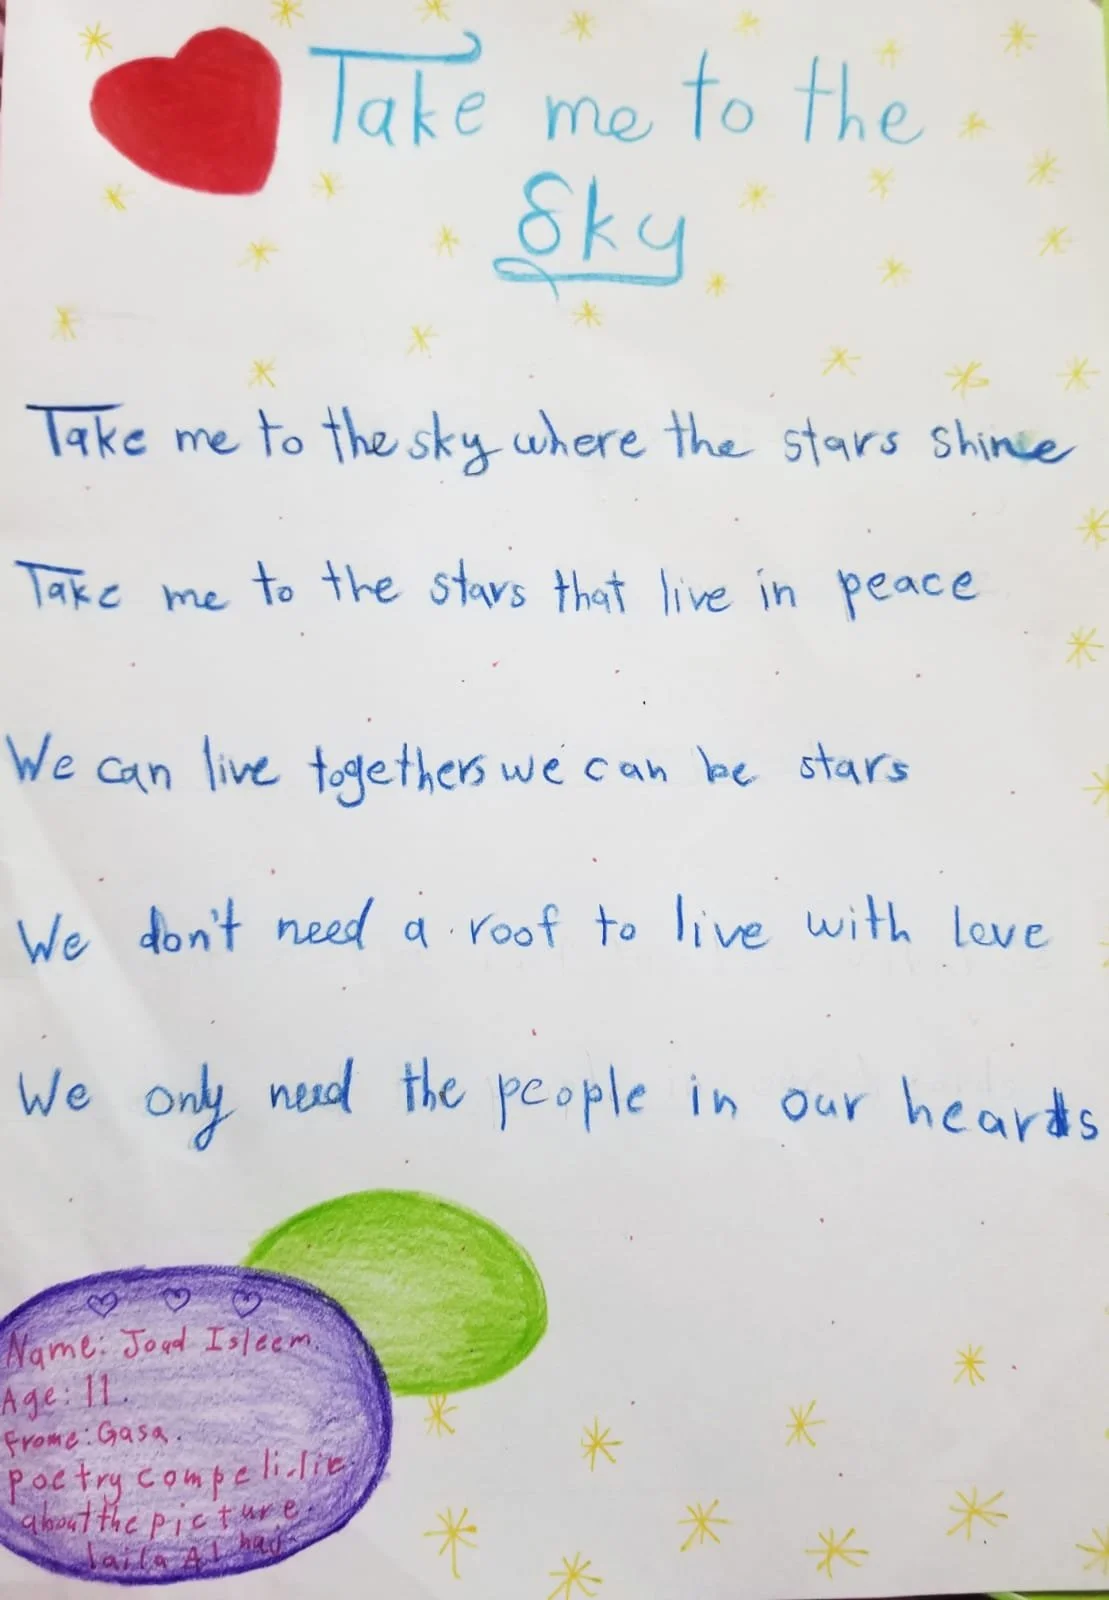 Take me to the
Sky
Take me to the sky where the stars shine
Take me to the stars that live in peace
We can live togethers we can be stars
We don't need a roof to live with love
We only need the people in our heards
Name: Joad Isleem.
Age: 11.
Frome: Gasa.
poetry
about the picture
laila Al haj